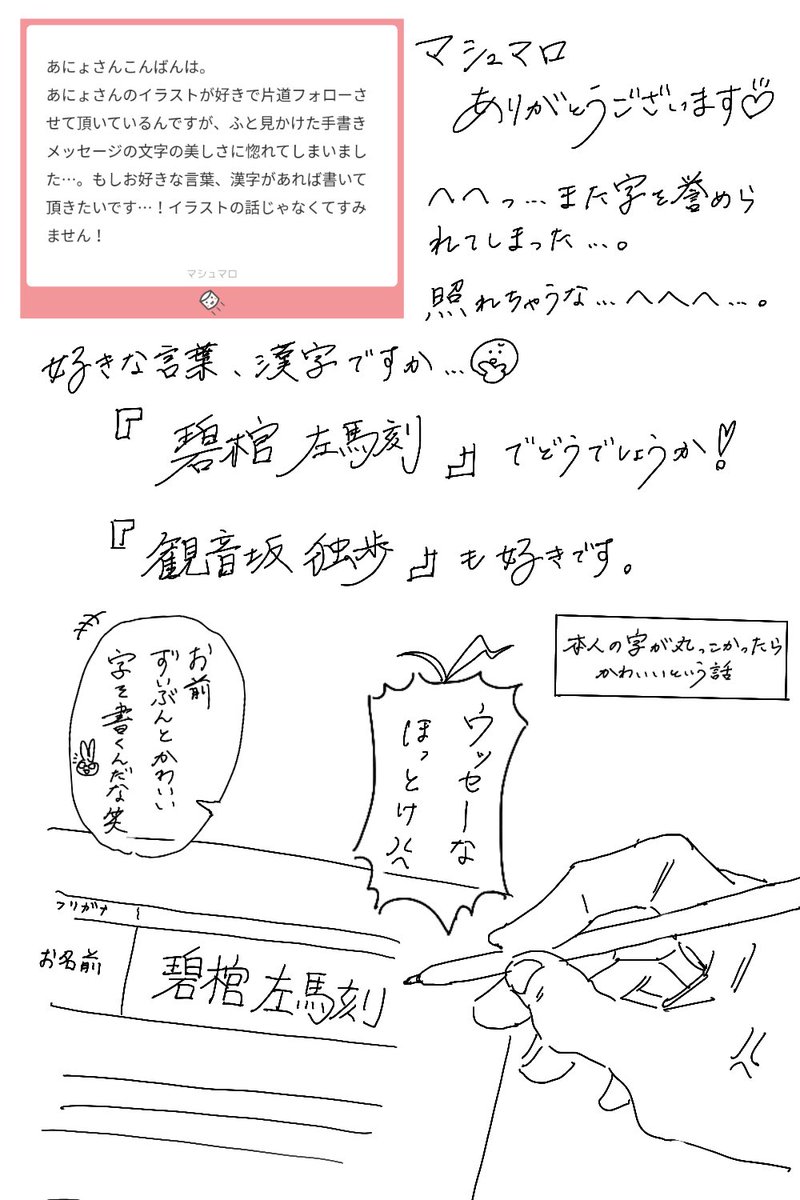 あにょさんこんばんは。
あにょさんのイラストが好きで片道フォローさ
せて頂いているんですが、ふと見かけた手書き
メッセージの文字の美しさに惚れてしまいまし
た…。もしお好きな言葉、漢字があれば書いて
頂きたいです…！イラストの話じゃなくてすみ
ません！
マシュマロ
マシュマロ
ありがとうございます♡
へへっ…また字を誉めら
れてしまった…。
照れちゃうな…へへへ…。
好きな言葉、漢字ですか…
『碧棺 左馬刻』でどうでしょうか！
『観音坂 独歩』も好きです。
本人の字が丸っこかったら
かわいいという話
ウッセーな
ほっとけや
お前
ずいぶんとかわいい
字を書くんだな笑
フリガナ
お名前
碧棺 左馬刻